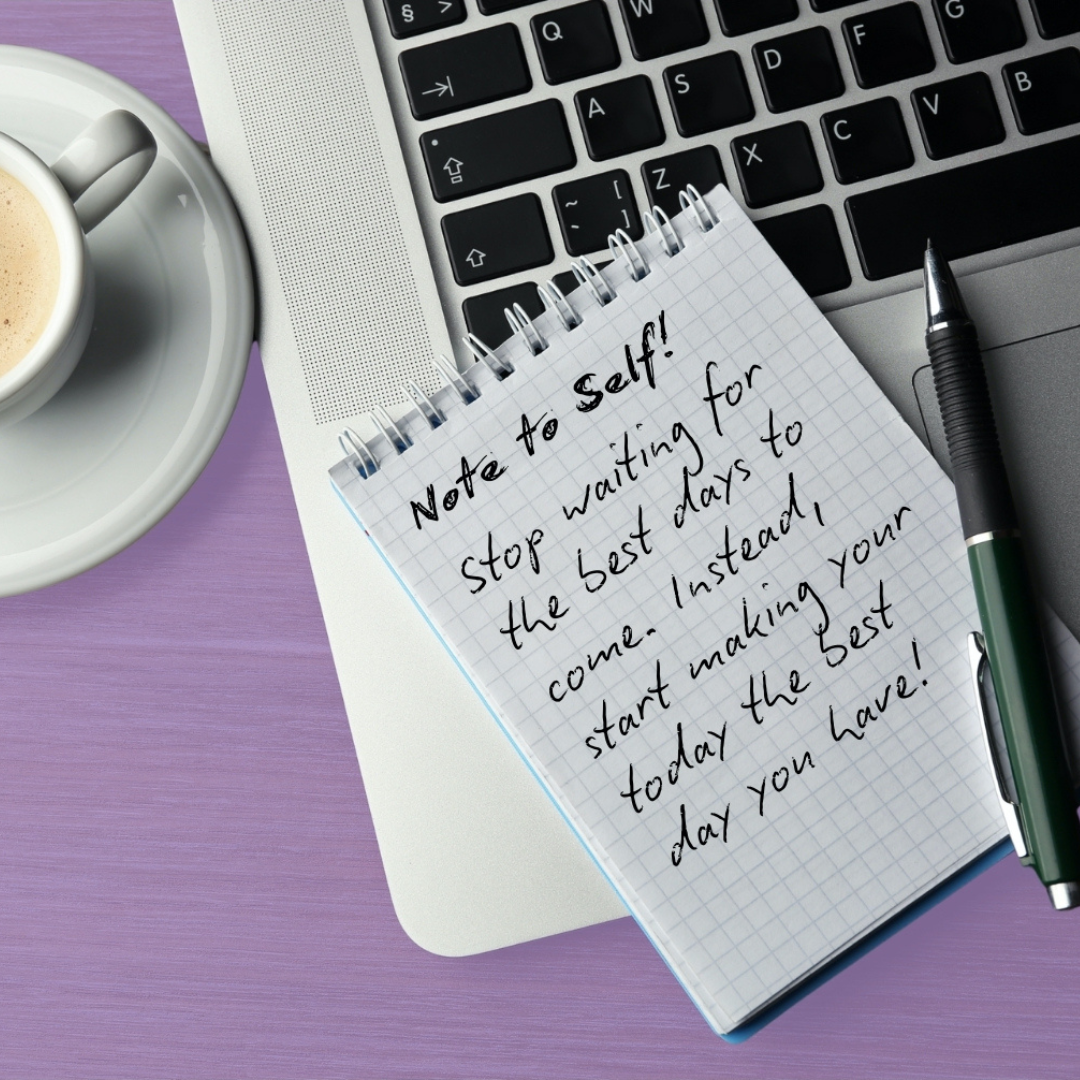 § >
Q W
F G
A S D
V B
Z X C
~ [
` ]
Note to Self!
Stop waiting for
the best days to
come. Instead,
start making your
today the best
day you have!